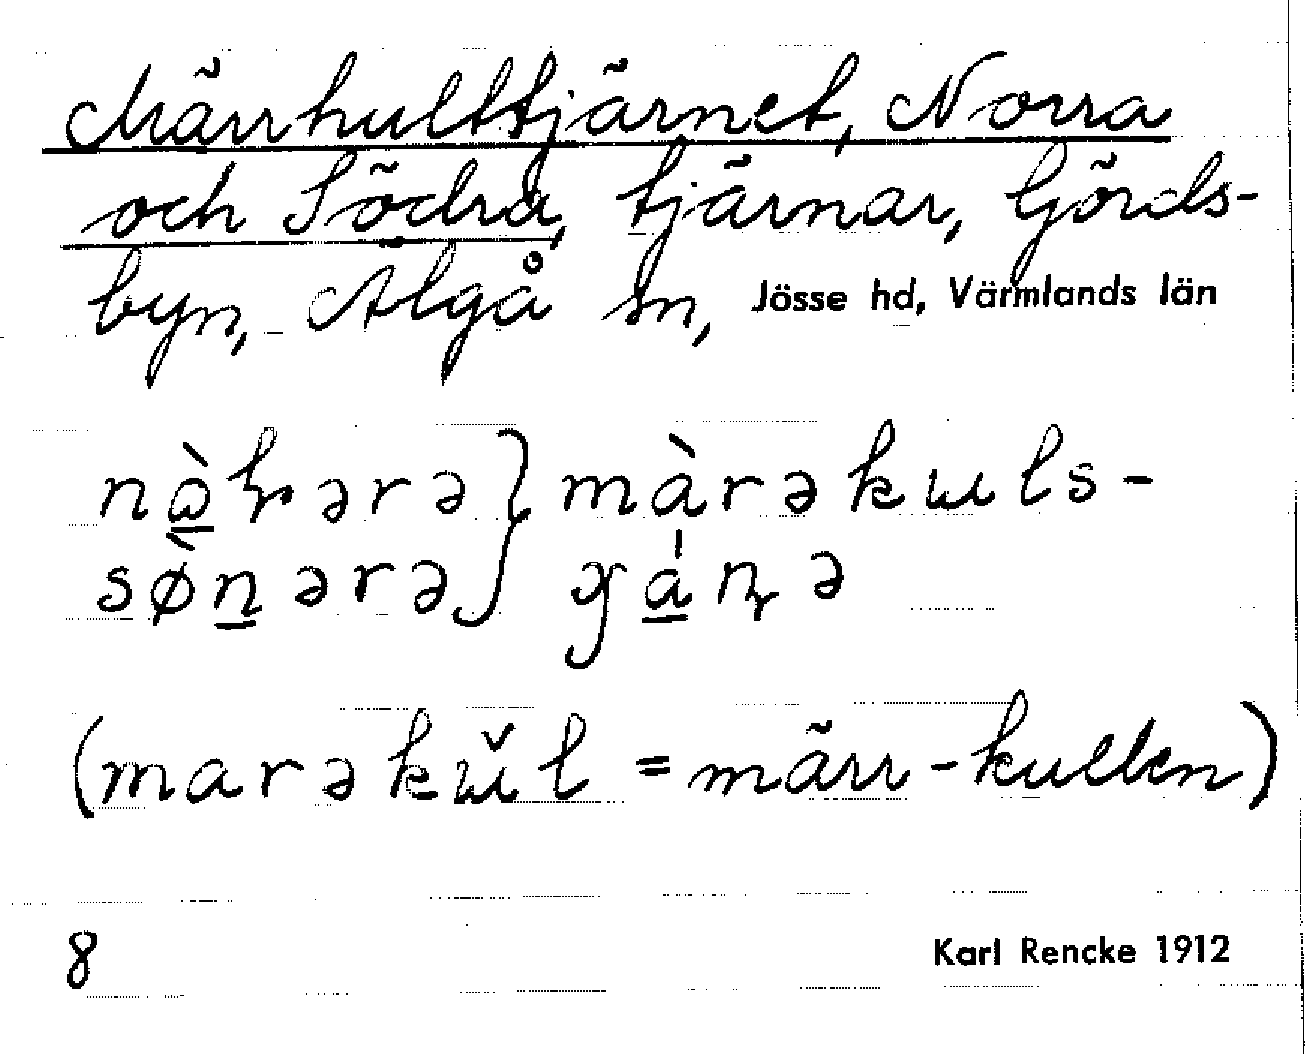 Märrhulttjärnet, Norra
och Södra, tjärnar, Gjörds-
byn, Älgå sn, Jösse hd, Värmlands län
marəkɯls-
(marəkɯ̌l = märr-kullen)
8 Karl Rencke 1912